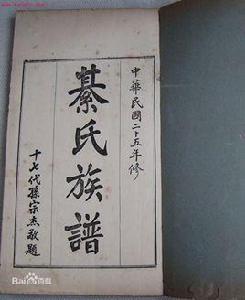 中華民國二十五年修
綦氏族譜
十七代孫宗杰敬題
Bai百科